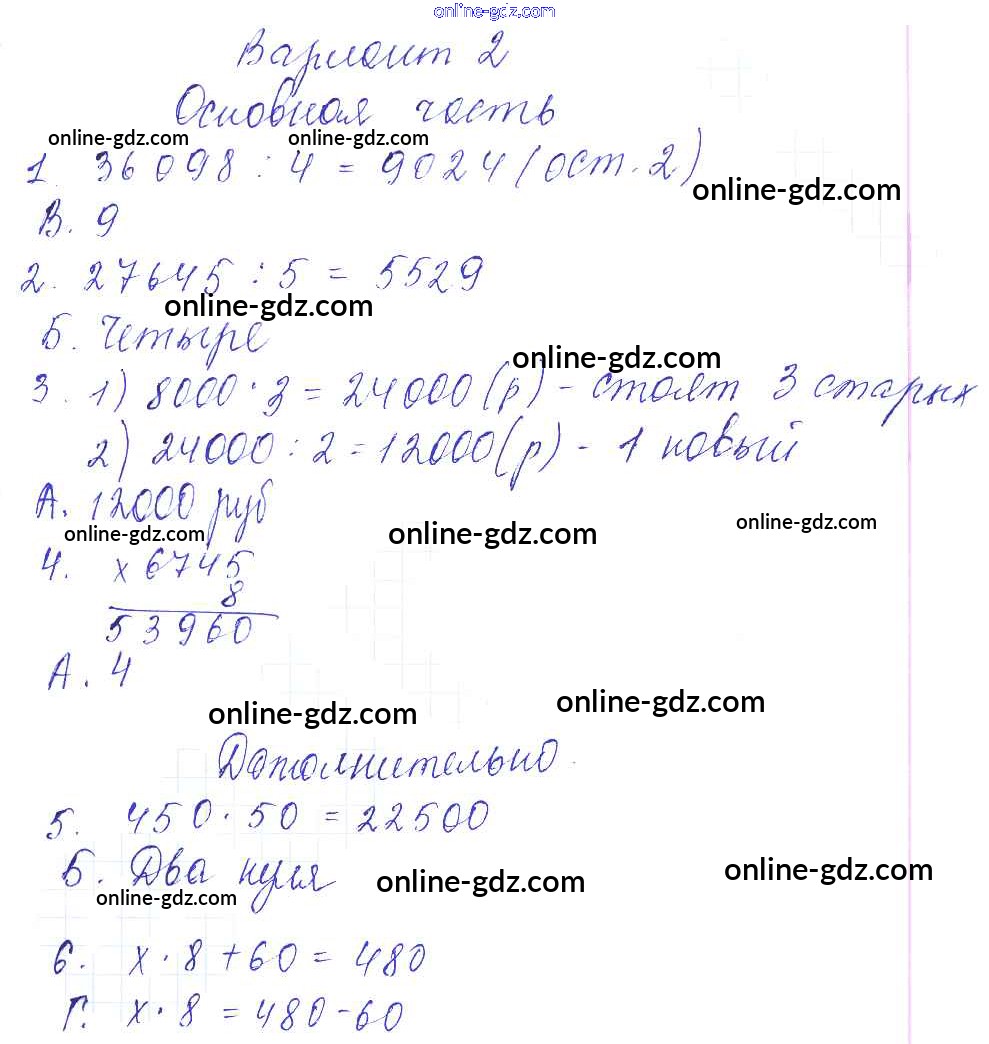 online-gdz.com
Вариант 2
Основная часть
online-gdz.com online-gdz.com
1. 36098 : 4 = 9024 (ост. 2)
online-gdz.com
В. 9
2. 27645 : 5 = 5529
online-gdz.com
Б. Четыре
online-gdz.com
3. 1) 8000 · 3 = 24000 (р) - стоят 3 старых
2) 24000 : 2 = 12000 (р) - 1 новый
А. 12000 руб
online-gdz.com online-gdz.com online-gdz.com
4. х 6745
8
53960
А. 4
online-gdz.com online-gdz.com
Дополнительно
5. 450 · 50 = 22500
Б. Два нуля
online-gdz.com online-gdz.com online-gdz.com
6. х · 8 + 60 = 480
Г. х · 8 = 480 - 60